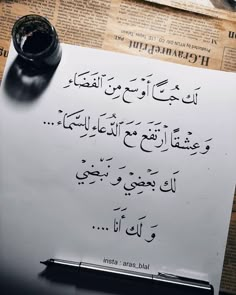 H.GravurePrint
لك حبًّا أوسع من الفضاء
وعشقًا ارتفع مع الدعاء للسماء...
لك بعضي و نبضي
و لك أنا ....
insta : aras_blal